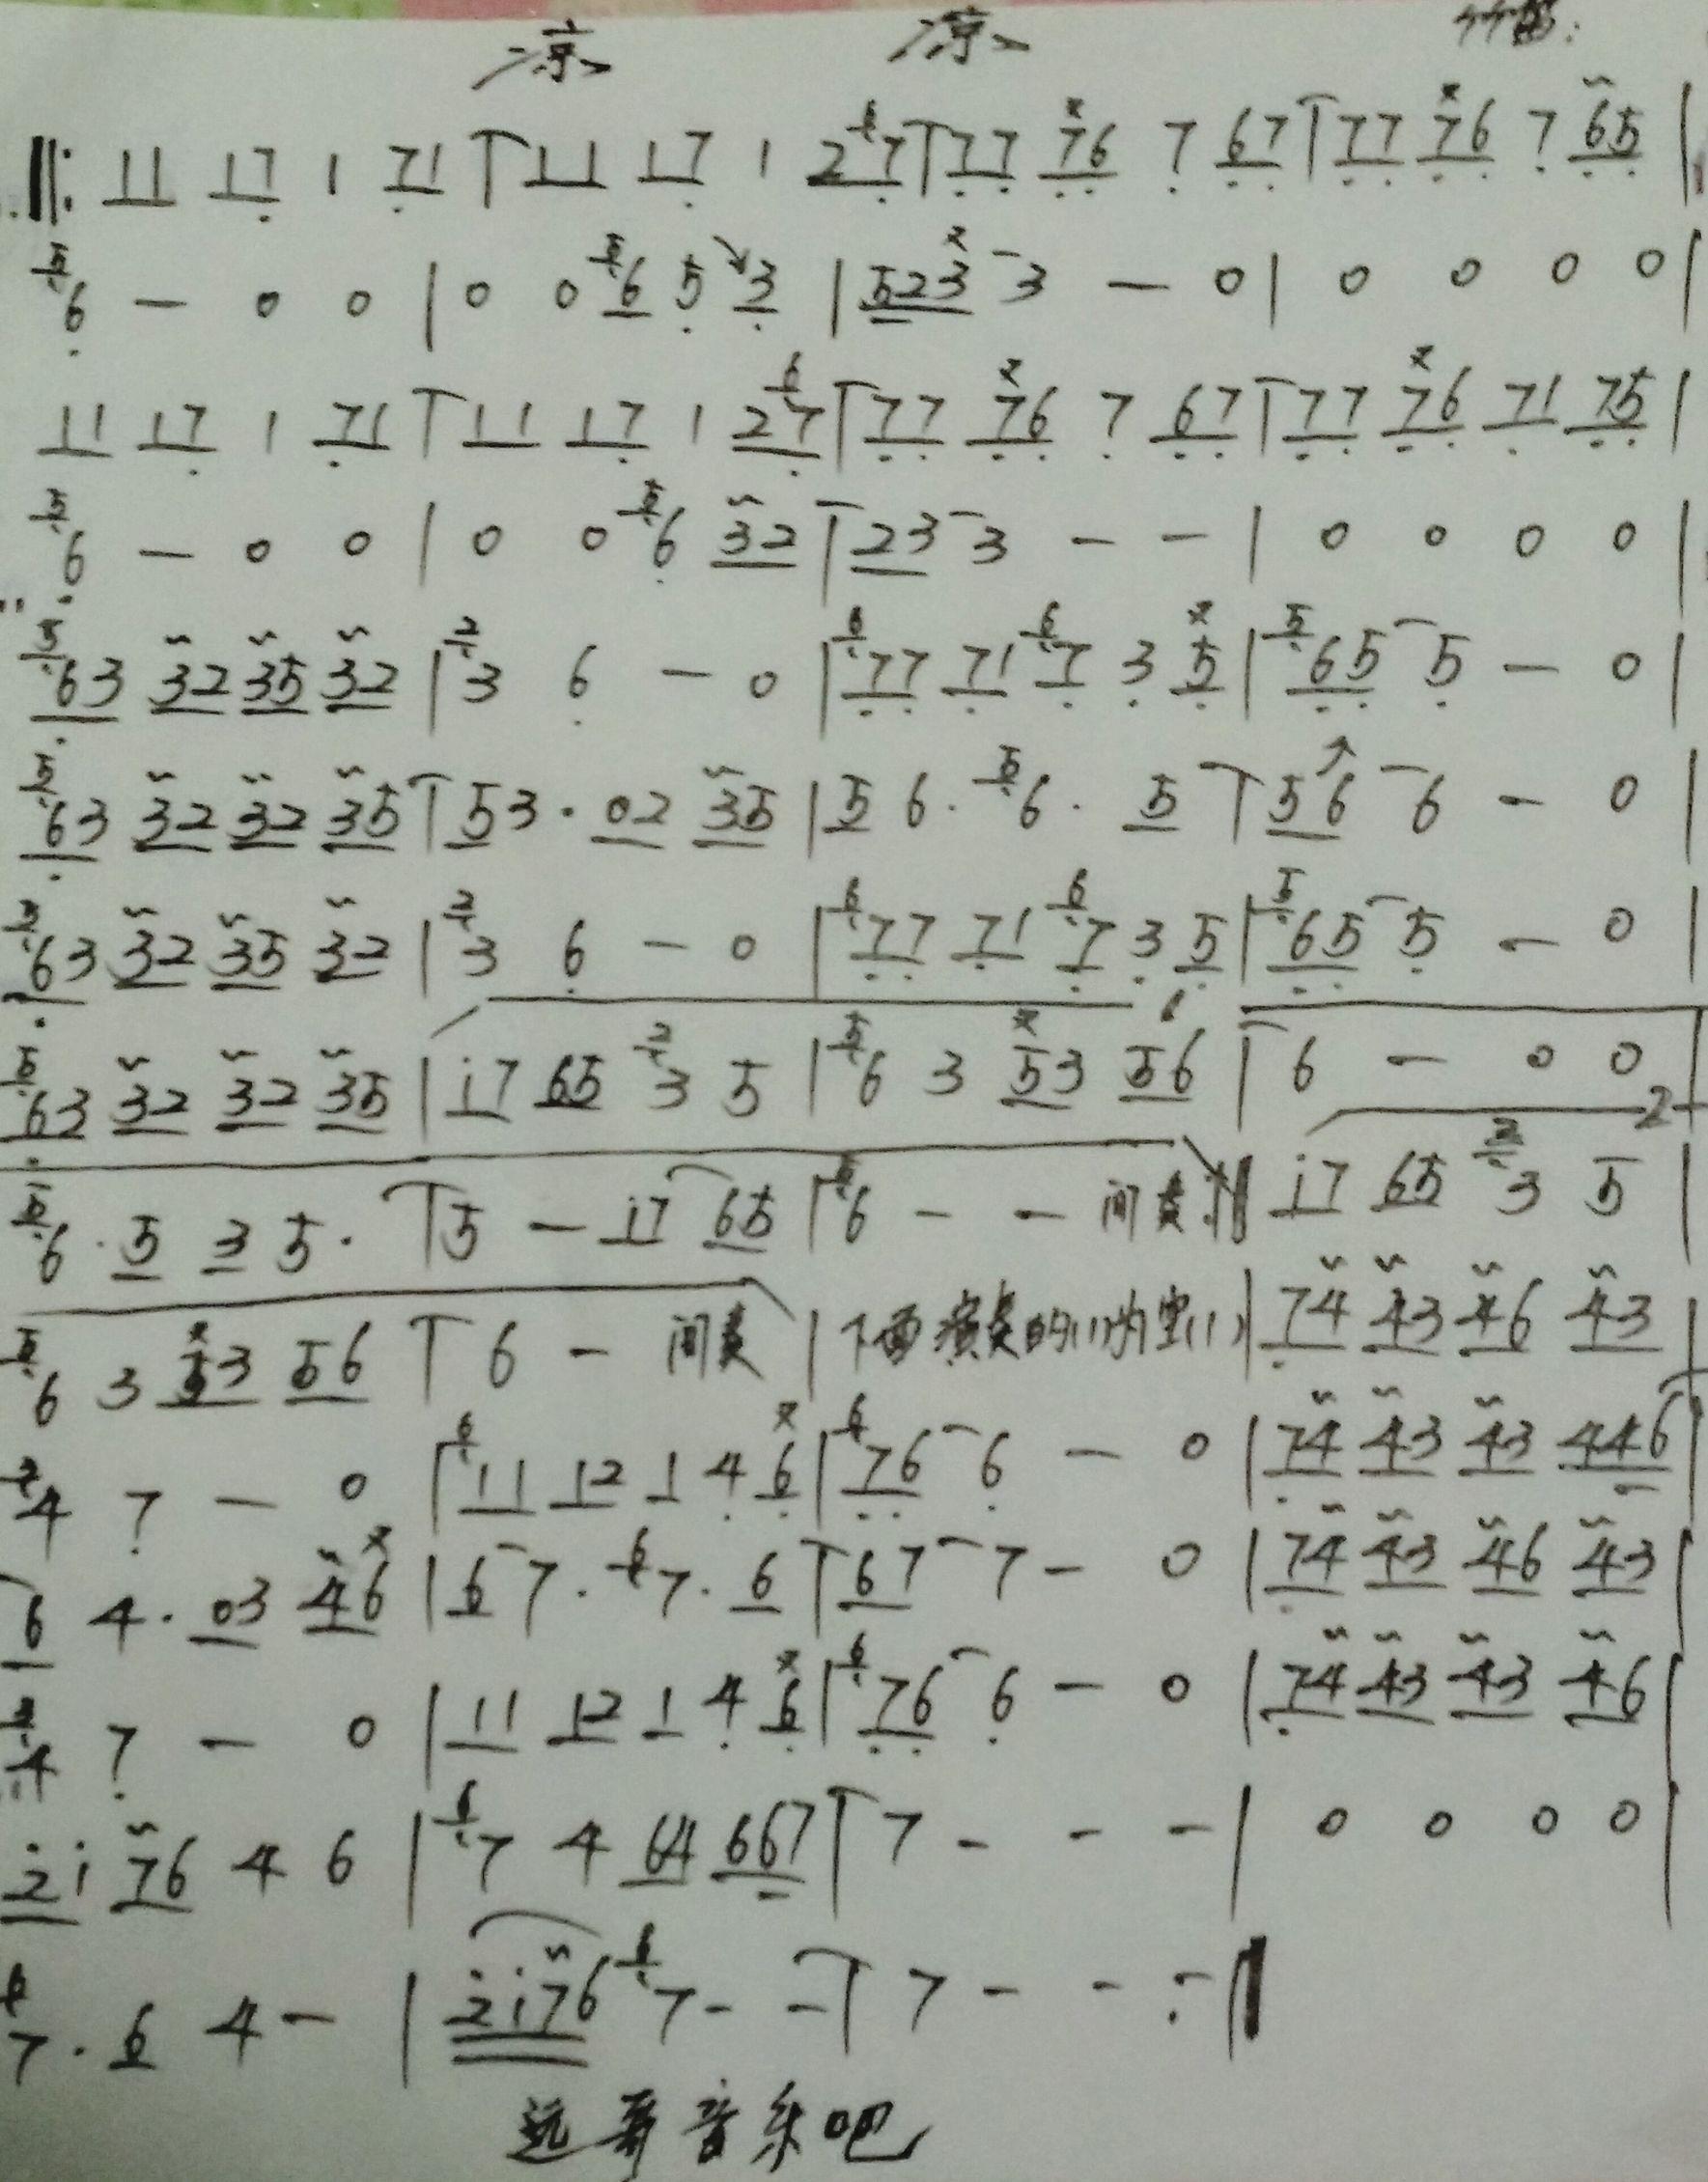 凉 凉
||: 11 17 1 71 | 11 17 1 2 6 7 | 77 76 7 67 | 77 76 7 65 |
5 6 — 0 0 | 0 0 5 6 5 3 | 523 3 — 0 | 0 0 0 0 |
11 17 1 71 | 11 17 1 2 6 7 | 77 76 7 67 | 77 76 71 75 |
5 6 — 0 0 | 0 0 5 6 32 | 23 3 - - | 0 0 0 0 |
5 63 32 35 32 | 2 3 6 — 0 | 6 77 71 6 7 3 5 | 5 65 5 — 0 |
5 63 32 32 35 | 53 · 02 35 | 5 6 · 5 6 · 5 | 56 6 - 0 |
5 63 32 35 32 | 2 3 6 — 0 | 6 77 71 6 7 3 5 | 5 65 5 — 0 |
5 63 32 32 35 | i7 65 2 3 5 | 5 6 3 53 56 | 6 — 0 0 |
5 6 · 5 3 5 · | 5 — i7 65 | 5 6 - - 间奏 :|| 2 i7 65 2 3 5 |
5 6 3 53 56 | 6 - 间奏 | 下面演奏的(1)为宝(1) | 74 43 46 43 |
3 4 7 — 0 | 6 11 12 1 4 6 | 6 76 6 — 0 | 74 43 43 446 |
6 4 · 03 46 | 6 7 · 6 7 · 6 | 67 7 - 0 | 74 43 46 43 |
3 4 7 — 0 | 11 12 1 4 6 | 6 76 6 — 0 | 74 43 43 46 |
2i 76 4 6 | 6 7 4 64 667 | 7 - - - | 0 0 0 0 |
6 7 · 6 4 - | 2i76 6 7 - - | 7 - - - ||
远哥音乐吧